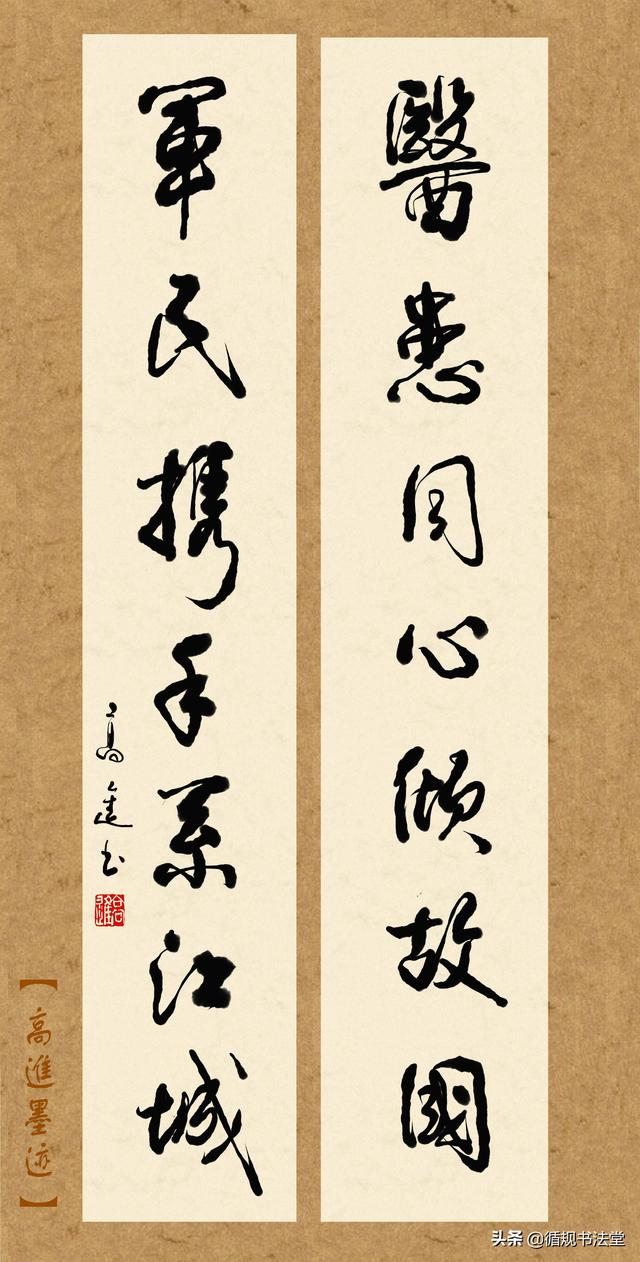 醫患同心傾故國
軍民携手系江城
高進书
【高進墨迹】
头条 @循规书法堂